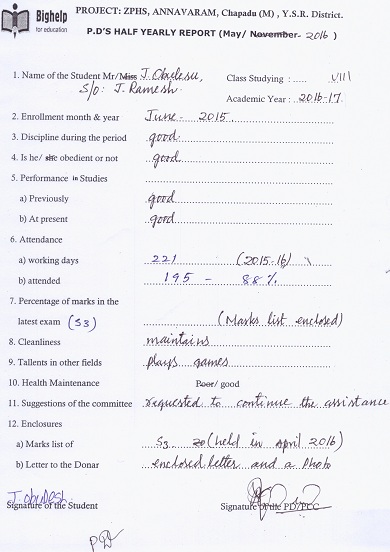 Bighelp
for education
PROJECT: ZPHS, ANNAVARAM, Chapadu (M) , Y.S.R. District.
P.D'S HALF YEARLY REPORT (May/ November- 2016 )
1. Name of the Student Mr/Miss J. Obulesu, Class Studying : ..... VIII
S/o: J. Ramesh. Academic Year : 2016-17.
2. Enrollment month & year June - 2015
3. Discipline during the period good
4. Is he/ she obedient or not good
5. Performance in Studies
a) Previously good
b) At present good
6. Attendance
a) working days 221 (2015-16)
b) attended 195 - 88%
7. Percentage of marks in the
latest exam (S3) (Marks list enclosed)
8. Cleanliness maintains
9. Tallents in other fields plays games
10. Health Maintenance Poor/ good
11. Suggestions of the committee requested to continue the assistance
12. Enclosures
a) Marks list of S3 (held in April 2016)
b) Letter to the Donar enclosed letter and a photo
J. obulesh
Signature of the Student Signature of the PD/PCC
PD